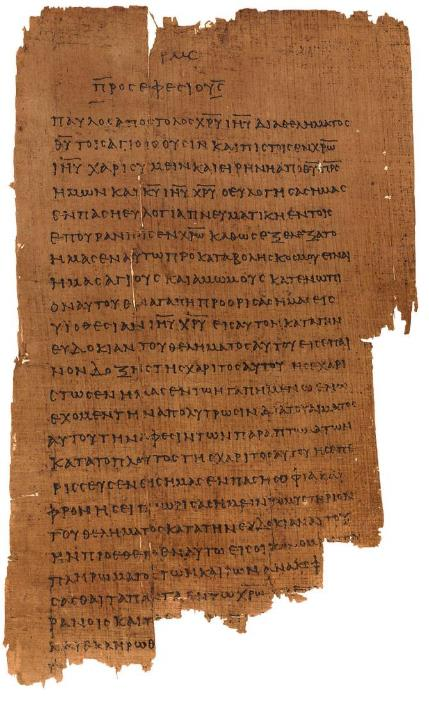 ΡΜϚ
Π̅ΡΟϹ ΕΦΕϹΙΟΥϹ̅
ΠΑΥΛΟϹ ΑΠΟϹΤΟΛΟϹ Χ̅Ρ̅Υ̅ Ι̅Η̅Υ̅ ΔΙΑ ΘΕΛΗΜΑΤΟϹ
Θ̅Υ̅ ΤΟΙϹ ΑΓΙΟΙϹ ΟΥϹΙΝ ΚΑΙ ΠΙϹΤΟΙϹ ΕΝ Χ̅Ρ̅Ω̅
Ι̅Η̅Υ̅ ΧΑΡΙϹ ΥΜΕΙΝ ΚΑΙ ΕΙΡΗΝΗ ΑΠΟ Θ̅Υ̅ Π̅Ρ̅Ϲ̅
ΗΜΩΝ ΚΑΙ Κ̅Υ̅ Ι̅Η̅Υ̅ Χ̅Ρ̅Υ̅ Ο ΕΥΛΟΓΗϹΑϹ ΗΜΑϹ
ΕΝ ΠΑϹΗ ΕΥΛΟΓΙΑ ΠΝΕΥΜΑΤΙΚΗ ΕΝ ΤΟΙϹ
ΕΠΟΥΡΑΝΙΟΙϹ ΕΝ Χ̅Ρ̅Ω̅ ΚΑΘΩϹ ΕΞΕΛΕΞΑΤΟ
ΗΜΑϹ ΕΝ ΑΥΤΩ ΠΡΟ ΚΑΤΑΒΟΛΗϹ ΚΟϹΜΟΥ ΕΙΝΑΙ
ΗΜΑϹ ΑΓΙΟΥϹ ΚΑΙ ΑΜΩΜΟΥϹ ΚΑΤΕΝΩΠΙ
ΟΝ ΑΥΤΟΥ ΕΝ ΑΓΑΠΗ ΠΡΟΟΡΙϹΑϹ ΗΜΑϹ ΕΙϹ
ΥΙΟΘΕϹΙΑΝ Ι̅Η̅Υ̅ Χ̅Ρ̅Υ̅ ΕΙϹ ΑΥΤΟΝ ΚΑΤΑ ΤΗΝ
ΕΥΔΟΚΙΑΝ ΤΟΥ ΘΕΛΗΜΑΤΟϹ ΑΥΤΟΥ ΕΙϹ ΕΠΑΙ
ΝΟΝ ΔΟΞΗϹ ΤΗϹ ΧΑΡΙΤΟϹ ΑΥΤΟΥ ΗϹ ΕΧΑΡΙ
ΤΩϹΕΝ ΗΜΑϹ ΕΝ ΤΩ ΗΓΑΠΗΜΕΝΩ ΕΝ Ω
ΕΧΟΜΕΝ ΤΗΝ ΑΠΟΛΥΤΡΩϹΙΝ ΔΙΑ ΤΟΥ ΑΙΜΑΤΟϹ
ΑΥΤΟΥ ΤΗΝ ΑΦΕϹΙΝ ΤΩΝ ΠΑΡΑΠΤΩΜΑΤΩΝ
ΚΑΤΑ ΤΟ ΠΛΟΥΤΟϹ ΤΗϹ ΧΑΡΙΤΟϹ ΑΥΤΟΥ ΗϹ ΕΠΕ
ΡΙϹϹΕΥϹΕΝ ΕΙϹ ΗΜΑϹ ΕΝ ΠΑϹΗ ϹΟΦΙΑ ΚΑΙ
ΦΡΟΝΗϹΕΙ ΓΝΩΡΙϹΑϹ ΗΜΕΙΝ ΤΟ ΜΥϹΤΗΡΙΟΝ
ΤΟΥ ΘΕΛΗΜΑΤΟϹ ΚΑΤΑ ΤΗΝ ΕΥΔΟΚΙΑΝ ΑΥΤΟΥ
ΗΝ ΠΡΟΕΘΕΤΟ ΕΝ ΑΥΤΩ ΕΙϹ ΟΙΚΟΝΟΜ
ΠΛΗΡΩΜΑΤΟϹ ΤΩΝ ΚΑΙΡΩΝ ΑΝΑΚΕΦ
ϹΑϹΘΑΙ ΤΑ ΠΑΝΤΑ ΕΝ ΤΩ Χ̅Ρ̅Ω̅
ΡΑΝΟΙϹ ΚΑΙ Τ
Ω ΚΑΙ ΕΚΛΗΡΩΘ